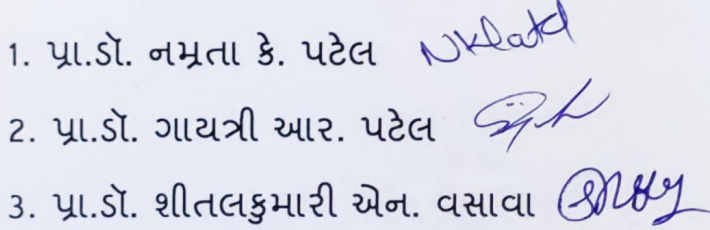 1. પ્રા.ડૉ. નમ્રતા કે. પટેલ NKPatel
2. પ્રા.ડૉ. ગાયત્રી આર. પટેલ
3. પ્રા.ડૉ. શીતલકુમારી એન. વસાવા